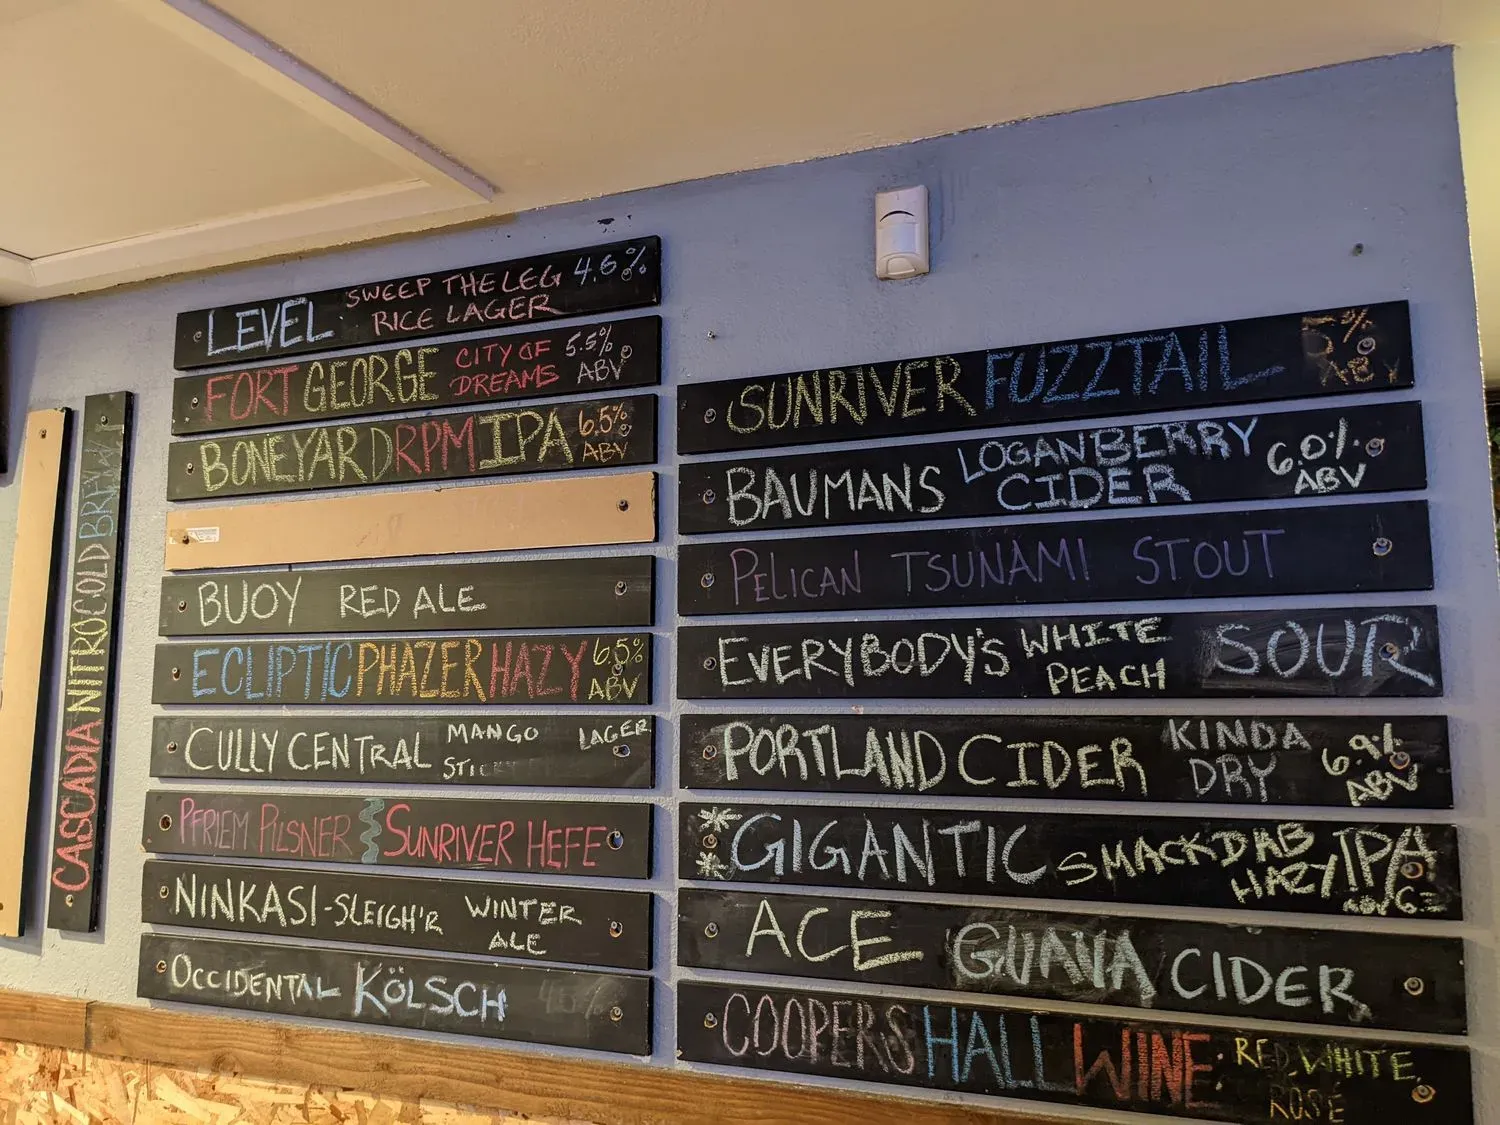 CASCADIA NITRO COLD BREW
LEVEL SWEEP THE LEG 4.6%
RICE LAGER
FORT GEORGE CITY OF 5.5%
DREAMS ABV
BONEYARD RPM IPA 6.5%
ABV
BUOY RED ALE
ECLIPTIC PHAZER HAZY 6.5%
ABV
CULLY CENTRAL MANGO LAGER
PFRIEM PILSNER SUNRIVER HEFE
NINKASI-SLEIGH'R WINTER
ALE
OCCIDENTAL KÖLSCH
SUNRIVER FUZZTAIL 5%
ABV
BAUMANS LOGANBERRY 6.0%
CIDER ABV
PELICAN TSUNAMI STOUT
EVERYBODY'S WHITE SOUR
PEACH
PORTLAND CIDER KINDA 6.9%
DRY ABV
GIGANTIC SMACKDAB IPA
HAZY
ACE GUAVA CIDER
COOPERS HALL WINE: RED, WHITE,
ROSÉ